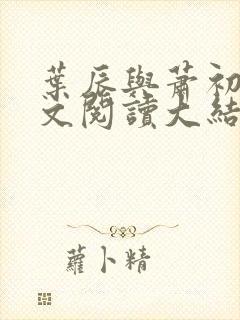 葉辰與蕭初
文閱讀大結
蘿卜精